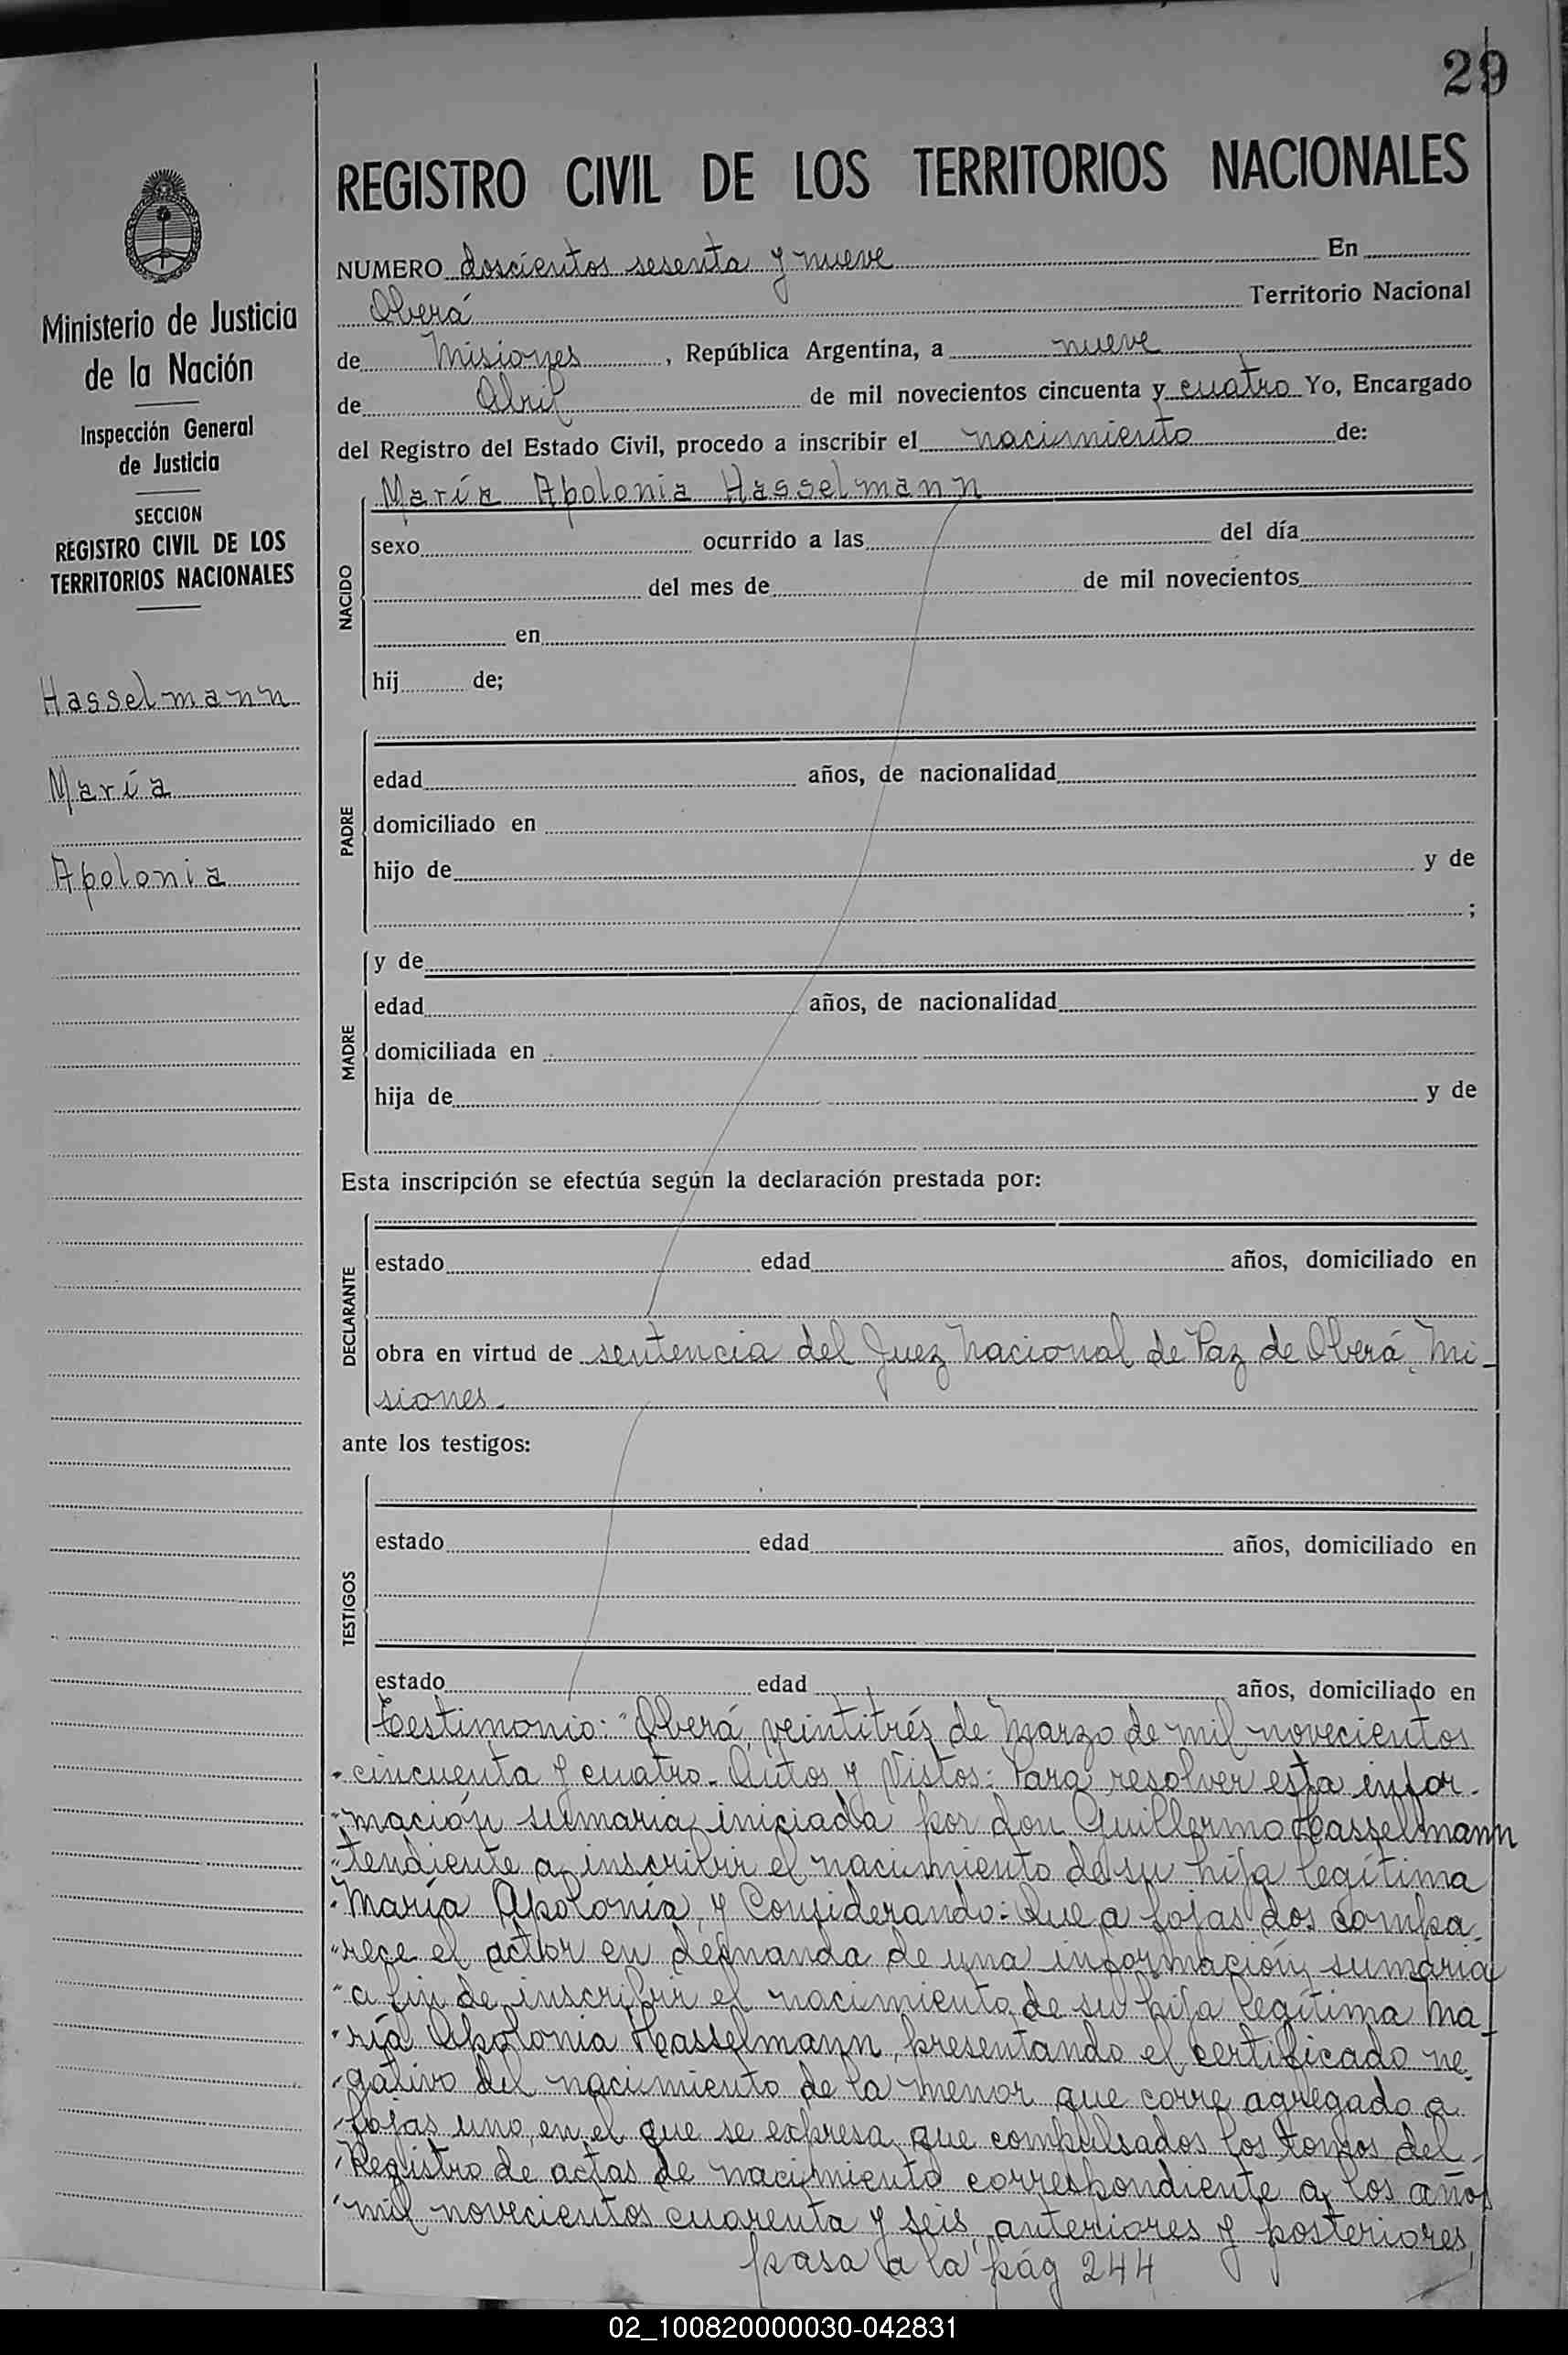 29
REGISTRO CIVIL DE LOS TERRITORIOS NACIONALES
Ministerio de Justicia
de la Nación
Inspección General
de Justicia
SECCION
REGISTRO CIVIL DE LOS
TERRITORIOS NACIONALES
Hasselmann
María
Apolonia
NUMERO doscientos sesenta y nueve En
Oberá Territorio Nacional
de Misiones, República Argentina, a nueve
de Abril de mil novecientos cincuenta y cuatro Yo, Encargado
del Registro del Estado Civil, procedo a inscribir el nacimiento de:
María Apolonia Hasselmann
NACIDO
sexo ocurrido a las del día
del mes de de mil novecientos
en
hij de;
PADRE
edad años, de nacionalidad
domiciliado en
hijo de y de
;
MADRE
y de
edad años, de nacionalidad
domiciliada en
hija de y de
Esta inscripción se efectúa según la declaración prestada por:
DECLARANTE
estado edad años, domiciliado en
obra en virtud de sentencia del Juez Nacional de Paz de Oberá, Mi-
siones.
ante los testigos:
TESTIGOS
estado edad años, domiciliado en
estado edad años, domiciliado en
Testimonio: "Oberá, veintitrés de Marzo de mil novecientos
"cincuenta y cuatro. Autos y Vistos: Para resolver esta infor-
"mación sumaria iniciada por don Guillermo Hasselmann
"tendiente a inscribir el nacimiento de su hija legítima
"María Apolonia, y Considerando: Que a fojas dos compa-
"rece el actor en demanda de una información sumaria
"a fin de inscribir el nacimiento de su hija legítima Ma-
"ría Apolonia Hasselmann, presentando el certificado ne-
"gativo del nacimiento de la menor que corre agregado a
"fojas uno, en el que se expresa que compulsados los tomos del
"Registro de actas de nacimiento correspondiente a los años
"mil novecientos cuarenta y seis, anteriores y posteriores,
pasa a la pág 244
02_100820000030-042831